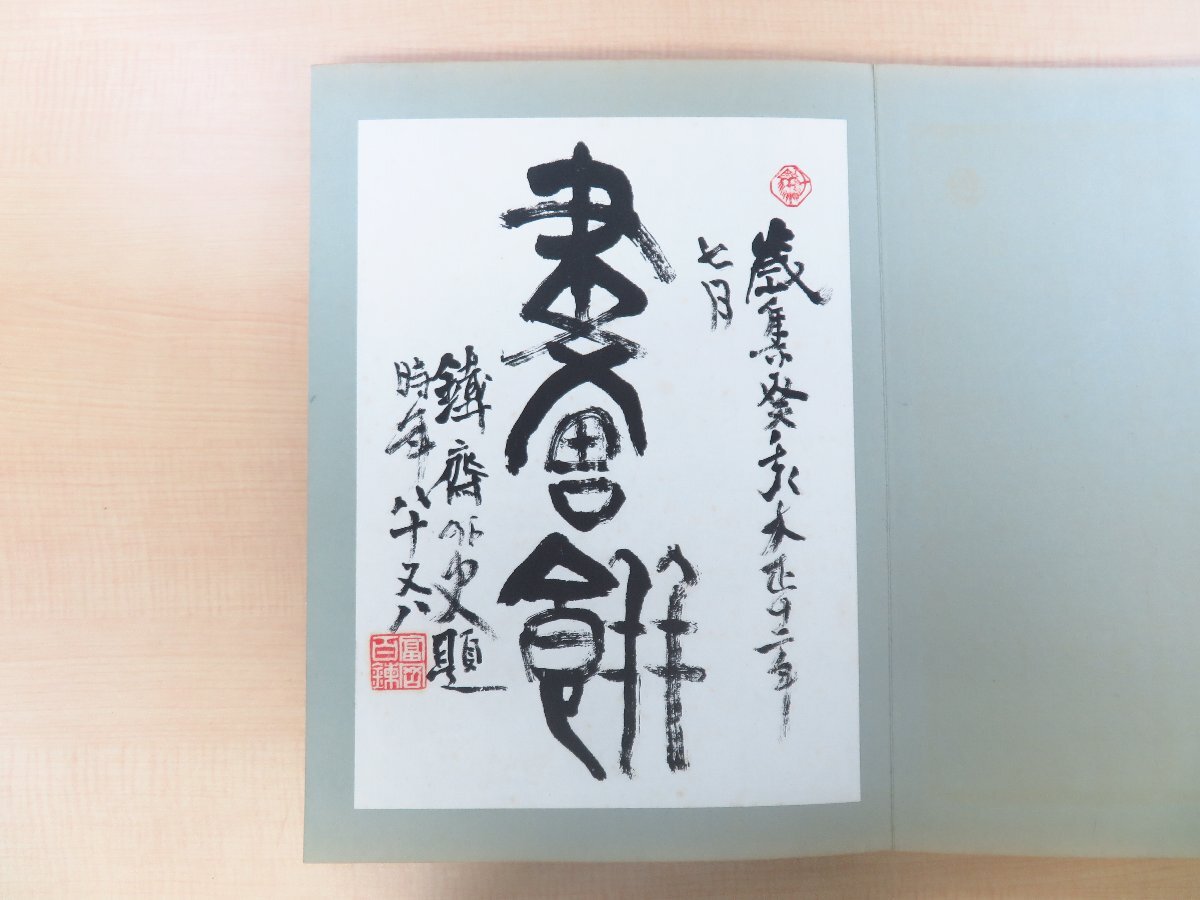 歳集癸亥大正十二年
七月
畫餅
鐵齋外史題
時年八十又八
富岡
百錬